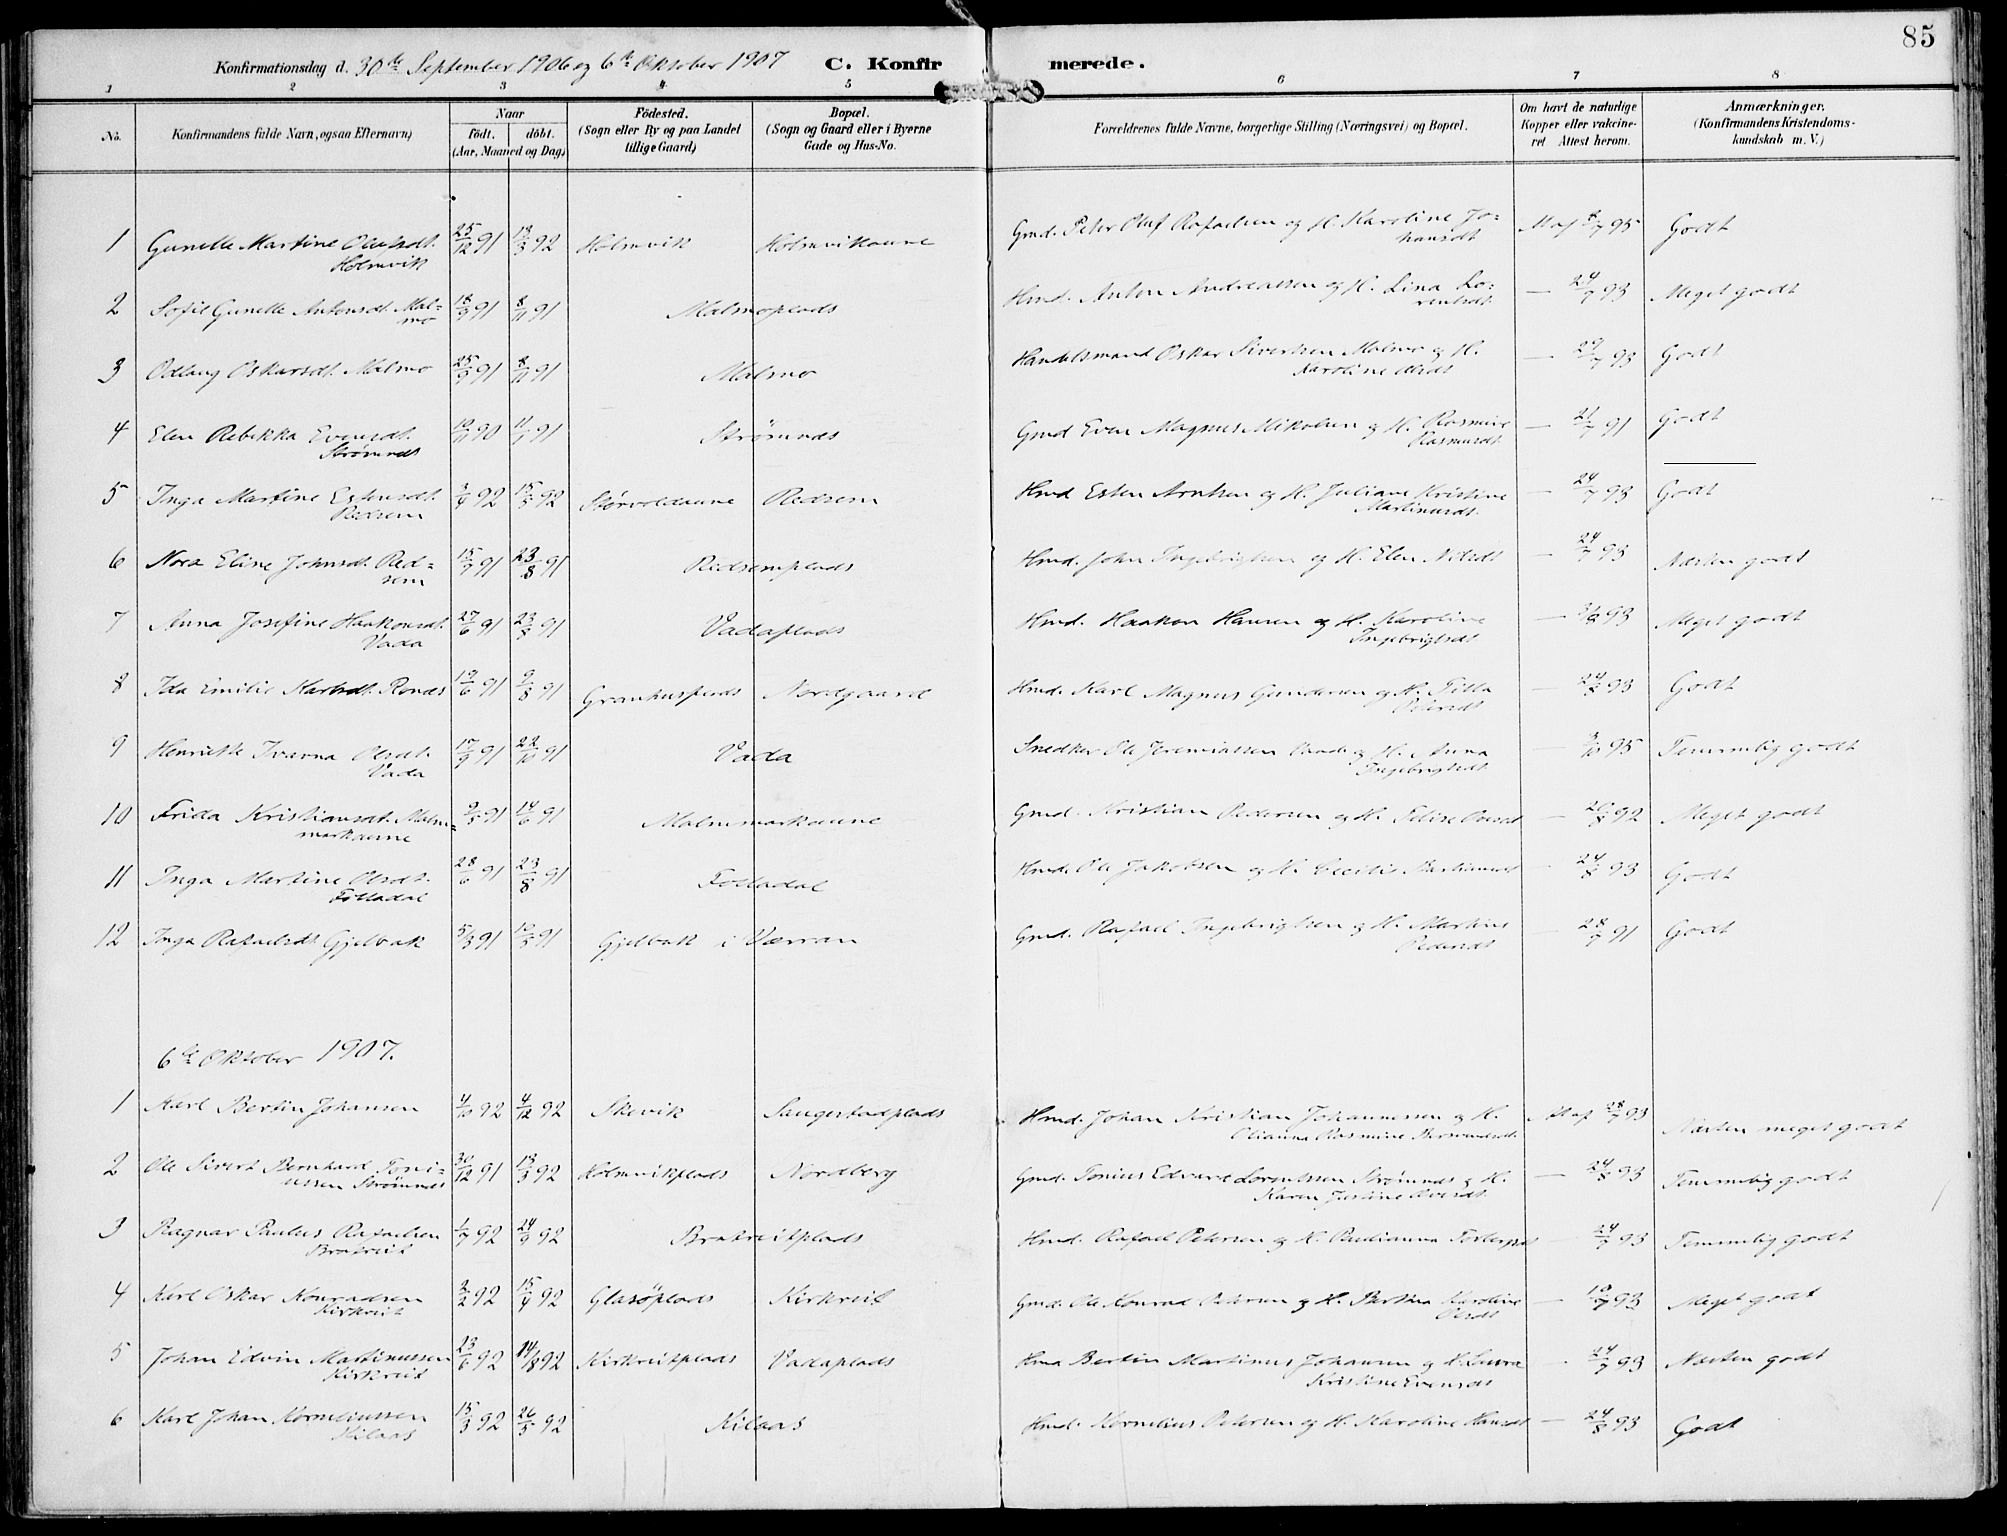 85
Konfirmationsdag d. 30te September 1906 og 6te Oktober 1907 C. Konfirmerede.
1 2 3 4 5 6 7 8
No. Konfirmandens fulde Navn, ogsaa Efternavn) Naar födt. döbt. (Aar, Maaned og Dag) Födested. (Sogn eller By og paa Landet tillige Gaard) Bopæl. (Sogn og Gaard eller i Byerne Gade og Hus-No. Forældrenes fulde Navne, borgerlige Stilling (Næringsvei) og Bopæl. Om havt de naturlige Kopper eller vakcineret Attest herom. Anmærkninger. (Konfirmandens Kristendomskundskab m. V.)
1 Gunelle Martine Olufsdt. Holmvik 25/12 91 13/3 92 Holmvik Holmvikaune Gmd. Peter Oluf Rafaelsen og H. Karoline Johansdt 95 Godt
2 Sofie Gunelle Antonsdt. Malmo 18/9 91 8/11 91 Malmoplads Hmd. Anton Andreassen og H. Lina Lorentsdt. — 24/7 93 Meget godt
3 Odlaug Oskarsdt. Malmo 25/9 91 8/11 91 Malmo Handelsmand Oskar Sivertsen Malmo og H. Karoline — 24/7 93 Godt
4 Elen Rebekka Evensdt. Strömnes 10/11 90 11/1 91 Strömnes Gmd Even Magnus Mikalsen og H. Rasmine Rasmusdt. — 21/7 91 Godt
5 Inga Martine Estensdt. Redsem 3/4 92 15/5 92 Redsem Hmd Esten Arntsen og H. Juliane Kristine Martinusdt. — 24/7 93 Godt
6 Nora Eline Johnsdt. Redsem 15/7 91 23/8 91 Redsemplads Hmd. John Ingebrigtsen og H. Elen Nilsdt — 24/7 93 Næsten godt
7 Anna Josefine Haakonsdt. Vada 27/6 91 23/8 91 Vadaplads Hmd. Haakon Hansen og H. Karoline Ingebrigtsdt — 93 Meget godt
8 Ida Emilie Karlsdt. 19/6 91 9/8 91 Granhusplads Nordgaard Hmd. Karl Magnus Gundersen og H. Pedersdt — 24/8 93 Godt
9 Henriette Ivarna Olsdt. Vada 17/9 91 22/10 91 Vada Snedker Ole Jeremiassen og H. Anna Ingebrigtsdt 3/10 95 Temmelig godt
10 Frida Kristiansdt. Malmmarkaune 9/5 91 14/6 91 Malmmarkaune Gmd. Kristian Pedersen og H. Olsdt — 20/8 92 Meget godt
11 Inga Martine Olsdt. Folladal 28/6 91 23/8 91 Folladal Hmd. Ole Jakobsen og H. Cecilie — 24/8 93 Godt
12 Inga Rafaelsdt. Gjelbak 5/3 91 10/5 91 Gjelbak i Værran Gmd. Rafael Ingebrigtsen og H. Pedersdt — 28/7 91 Godt
6te Oktober 1907.
1 Karl Bertin Johansen 4/10 92 4/12 92 Skevik Saugestadplads Hmd. Johan Kristian Johannessen og H. Olianna Rasmine 28/7 93 Næsten meget godt
2 Ole Sivert Bernhard Toniussen Strömnes 30/12 91 13/3 92 Holmvikplads Nordberg Gmd. Tonius Edvard Lorentssen Strömnes og H. Karen Justine — 24/8 93 Temmelig godt
3 Ragnar Paulus Rafaelsen Brakveit 1/7 92 24/9 92 Brakveitplads Hmd. Rafael Petersen og H. — 24/7 93 Temmelig godt
4 Karl Oskar Konradsen Kirkveit 3/2 92 15/4 92 Glasöplads Kirkveit Gmd. Ole Konrad Petersen og H. Berthea Karoline Olsdt — 18/7 93 Meget godt
5 Johan Edvin Martinussen Kirkveit 13/6 92 14/8 92 Kirkveitplads Vadaplads Hmd Bertin Martinus Johansen og H. Laura Kristine Evensdt 24/7 93 Næsten godt
6 Karl Johan Korneliussen Kilaas 15/3 92 26/5 92 Kilaas Hmd. Kornelius Petersen og H. Karoline Hansdt — 24/8 93 Godt